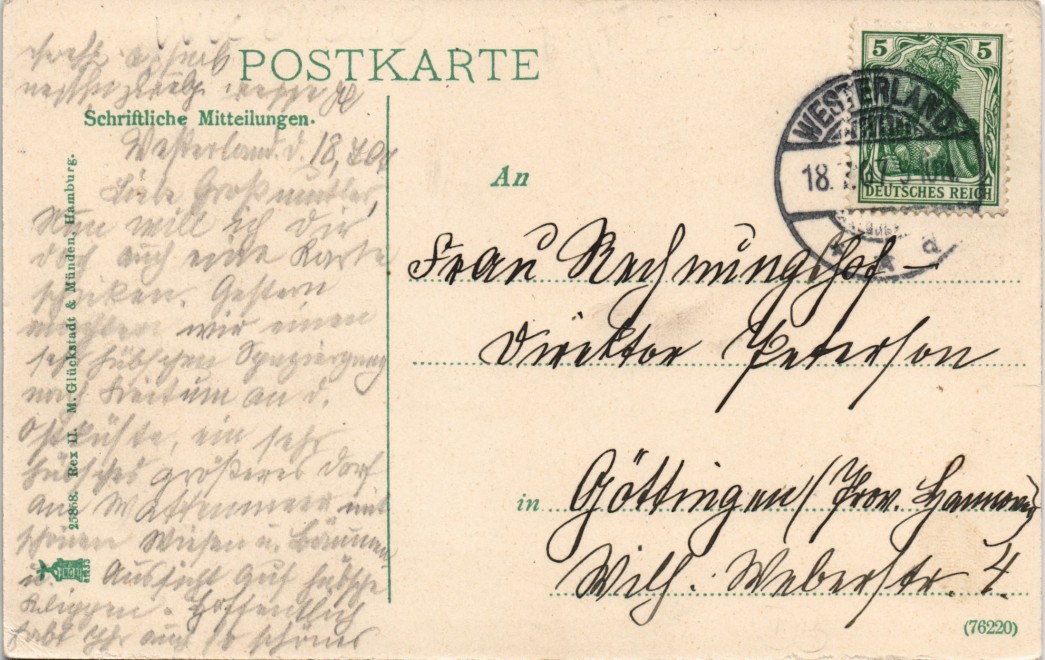 POSTKARTE
Schriftliche Mitteilungen.
Westerland. d. 18.7.07
Liebe Großmutter,
Nun will ich Dir
doch auch eine Karte
schicken. Gestern
machten wir einen
sehr hübschen Spaziergang
nach Keitum an d.
Ostküste, ein sehr
hübsches größeres Dorf
am Wattenmeer mit
schönen Wiesen u. Bäumen
u. Aussicht auf hübsche
Klippen. Hoffentlich
habt Ihr auch so schönes
An
Frau Rechnungshof-
Direktor Peterson
in Göttingen (Prov. Hannover)
Wilh. Weberstr. 4.
5 5
DEUTSCHES REICH
WESTERLAND
18.
25868. Rex II. M. Glückstadt & Münden, Hamburg.
(76220)